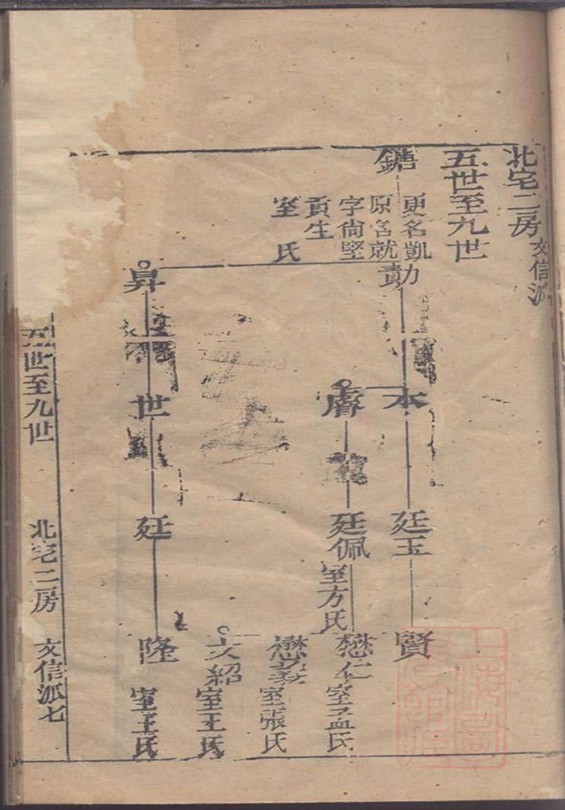 北宅二房 文信派
五世至九世
鐯
更名凱
原名就
字尚堅
貢生
室 氏
勳
本
廷玉
賢
膚
廷佩
室方氏
懋仁
室孟氏
懋義
室張氏
文紹
室王氏
昇
世
廷
隆
室王氏
五世至九世
北宅二房
文信派七